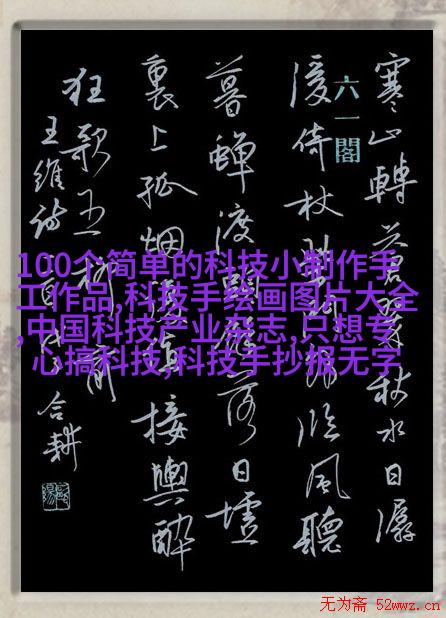 100个简单的科技小制作手
工作品,科技手绘画图片大全
,中国科技产业杂志,只想专
心搞科技,科技手抄报无字
六一閣
寒山轉蒼翠秋水日潺
湲倚杖柴門外臨風聽
暮蟬渡頭餘落日墟
裏上孤烟復值接輿醉
狂歌五柳前
王維詩
合耕
无为斋 52wwz.cn